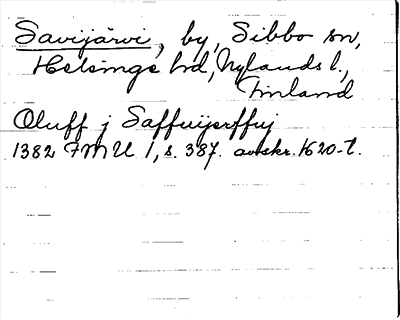 Savijärvi, by, Sibbo sn,
Helsinge hd, Nylands l.,
Finland
Oluff j Saffuijerffuj
1382 FMU 1, s. 387. avskr. 1620-t.